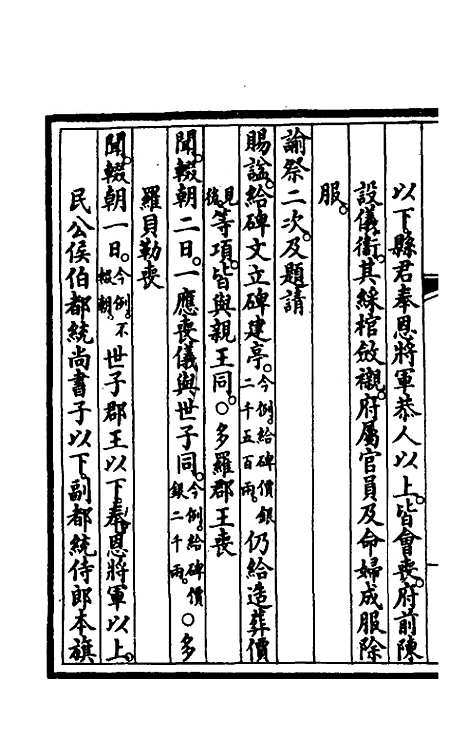 以下縣君奉恩將軍恭人以上。皆會喪。府前陳
設儀衛。其綵棺斂襯。府屬官員及命婦成服除
服。
諭祭二次。及題請
賜諡。給碑文立碑建亭。今例。給碑價銀二千五百兩。仍給造葬價
見後。等項。皆與親王同。○多羅郡王喪
聞。輟朝二日。一應喪儀與世子同。今例。給碑價銀二千兩。○多
羅貝勒喪
聞。輟朝一日。今例。不輟朝。世子郡王以下。奉恩將軍以上。
民公侯伯都統尚書子以下。副都統侍郎本旗